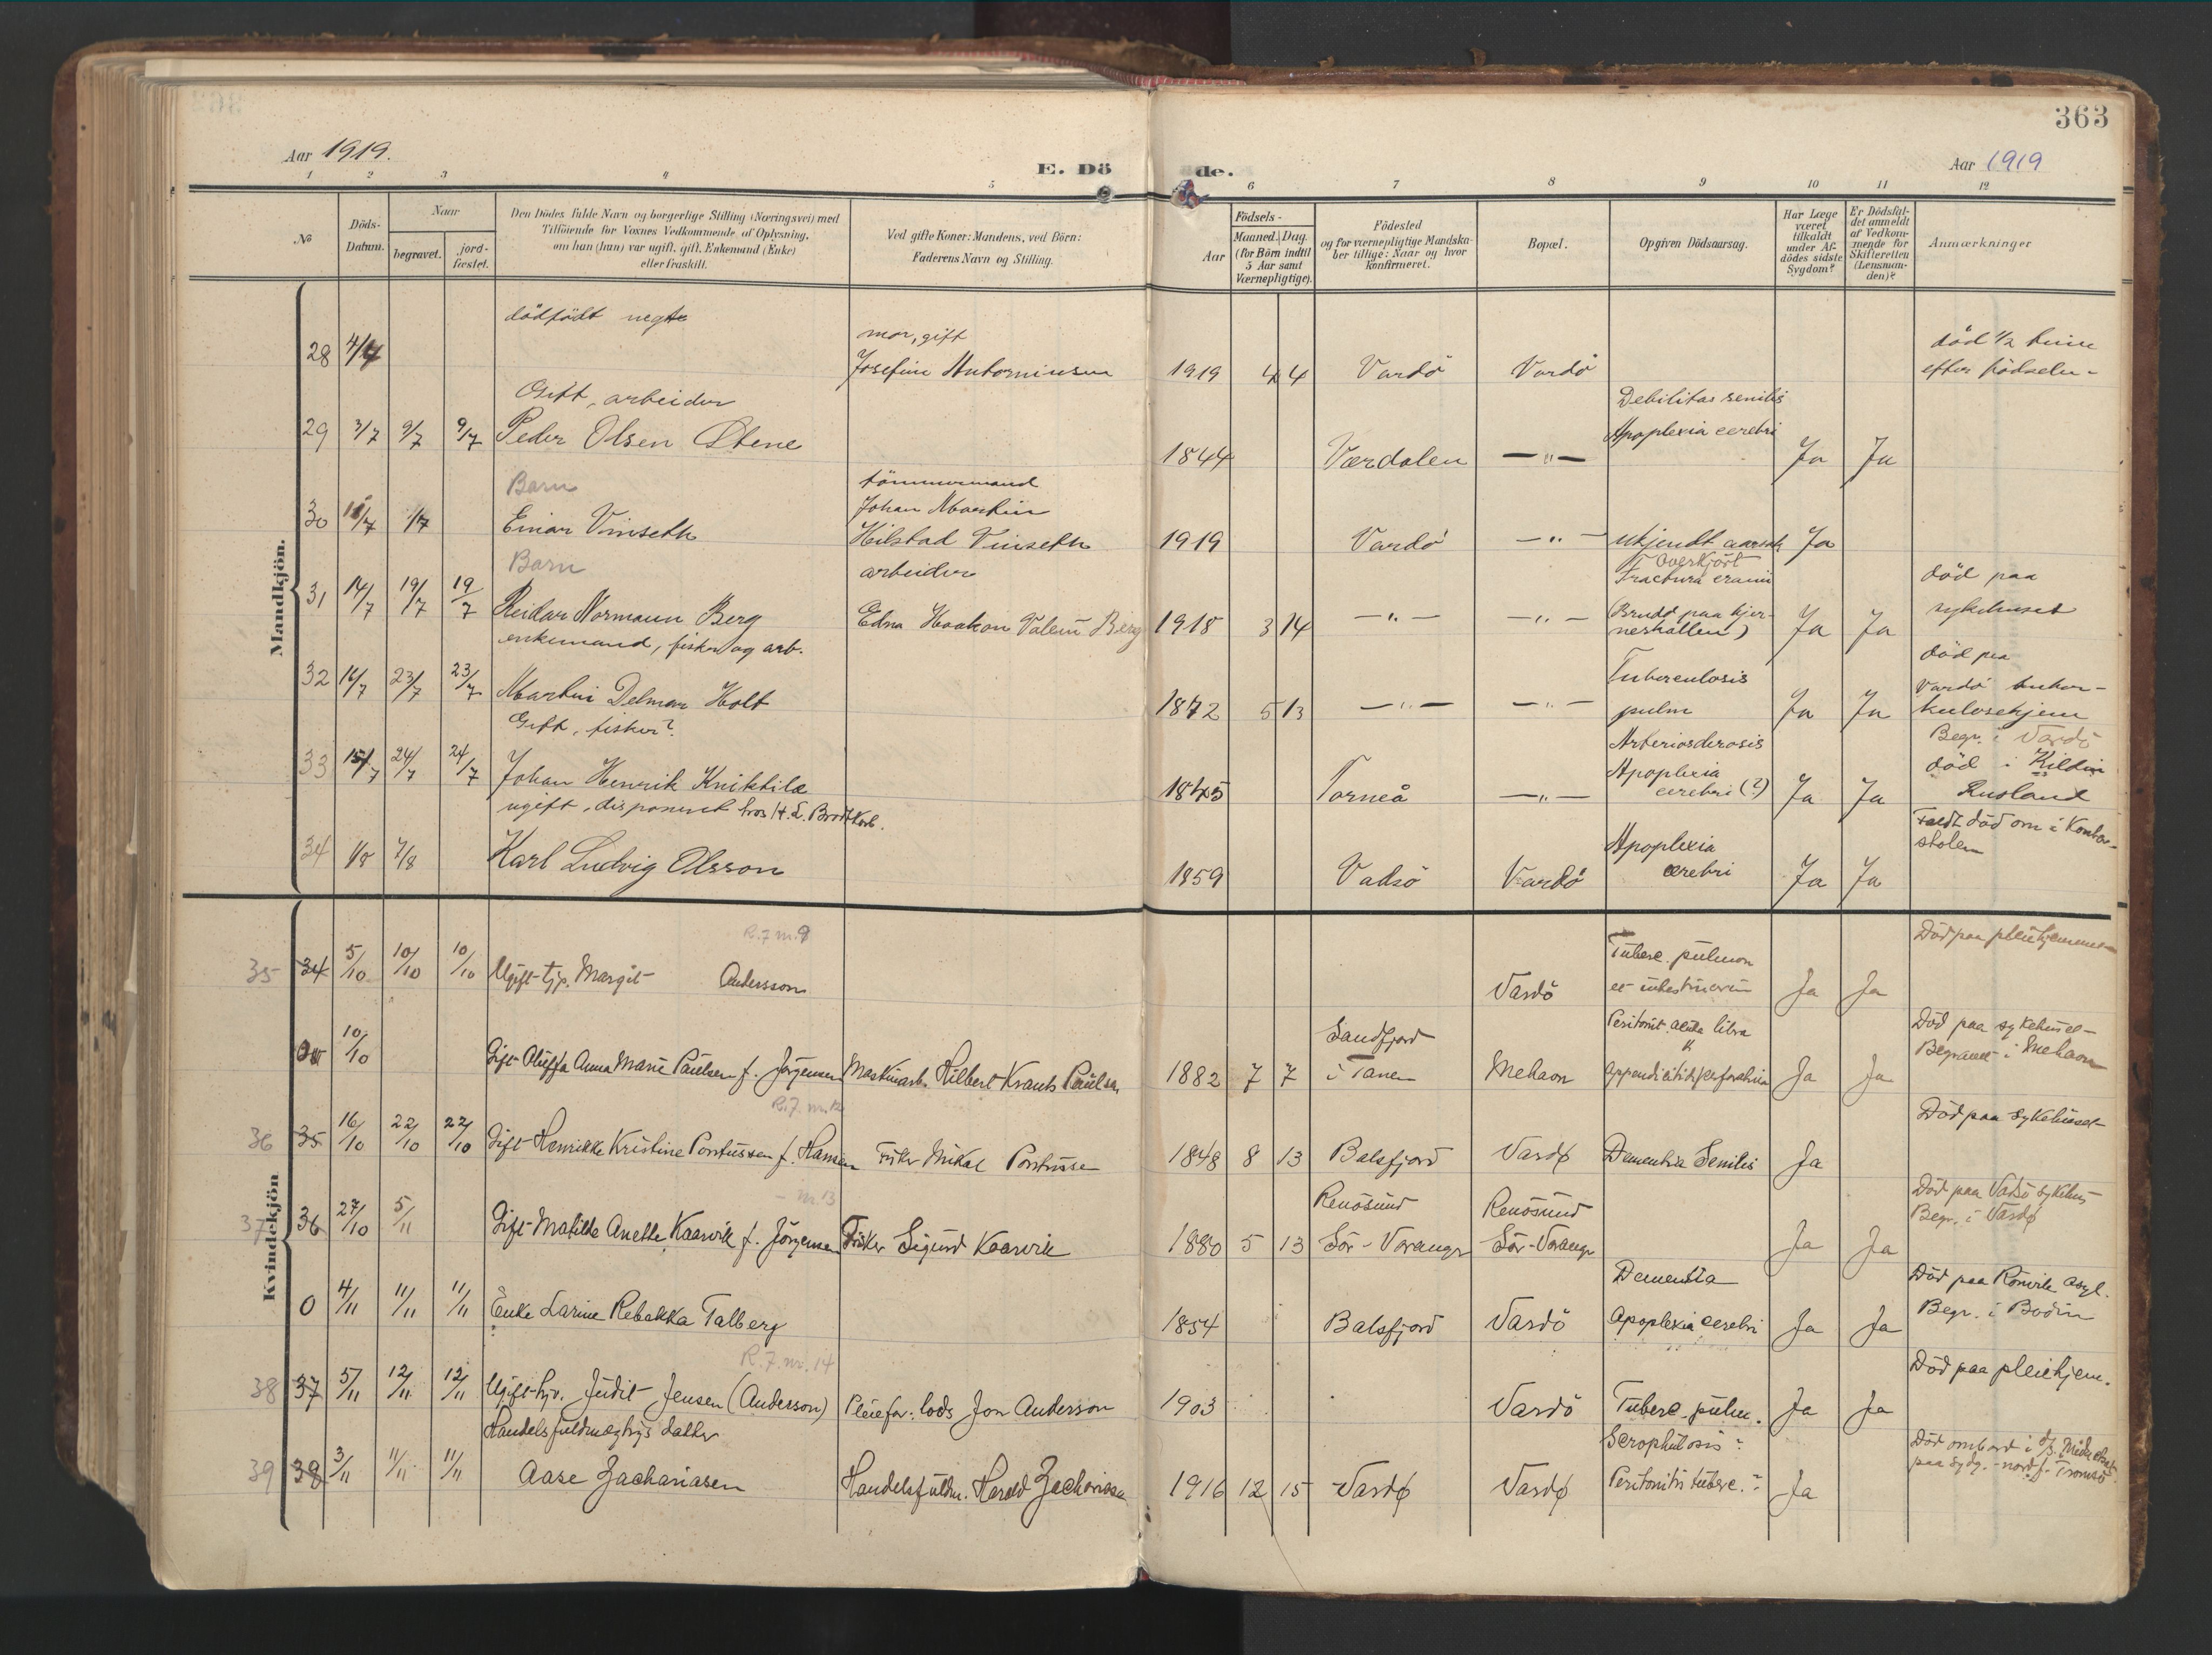 363
Aar 1919.
E. Döde.
Aar 1919
1 2 3 4 5 6 7 8 9 10 11 12
No
Döds-Datum.
Naar
begravet.
jord-fæstet.
Den Dödes fulde Navn og borgerlige Stilling (Næringsvei) med
Tilföiende for Voxnes Vedkommende af Oplysning,
om han (hun) var ugift, gift, Enkemand (Enke)
eller fraskilt.
Ved gifte Koner: Mandens, ved Börn:
Faderens Navn og Stilling.
Födsels-
Aar
Maaned. Dag.
(for Börn indtil
5 Aar samt
Værnepligtige).
Födested
og for værnepligtige Mandska-
ber tillige: Naar og hvor
konfirmeret.
Bopæl.
Opgiven Dödsaarsag.
Har Læge
været
tilkaldt
under Af-
dödes sidste
Sygdom?
Er Dödsfal-
det anmeldt
af Vedkom-
mende for
Skifteretten
(Lensman-
den)?
Anmærkninger
Mandkjön.
dödfödt
mor, gift
28 4/4 Josefine 1919 4 4 Vardö Vardö
död 1/2 time
efter födselen-
Gift, arbeider
Debilitas senilis
29 3/7 9/7 9/7 Peder Olsen 1844 Værdalen —"— Apoplexia cerebri Ja Ja
Barn
tömmermand
Johan Martin
30 Einar Vinseth Hilstad Vinseth 1919 Vardö —"— ukjendt aarsak Ja
Barn
arbeider
Overkjört
Fractura cranii
31 14/7 19/7 19/7 Reidar Normann Berg Edna Haakon Berg 1918 3 14 —"— —"— (Brudd paa hjer-
neskallen) Ja Ja
död paa
sykehuset
enkemand, fisker og arb.
32 16/7 23/7 23/7 Martin Delman Holt 1872 5 13 —"— —"— Tuberculosis
pulm Ja Ja
död paa
Vardö tuber-
kulosehjem
Gift, fisker?
33 24/7 24/7 Johan Henrik 1845 Torneå —"— Arteriosclerosis
Apoplexia
cerebri (?) Ja Ja
Begr. i Vardö
död i Kildin
Rusland
ugift, disponent hos H. L. Brodtkorb.
34 1/8 7/8 Karl Ludvig Olsson 1859 Vadsö Vardö Apoplexia
cerebri Ja Ja
Faldt död om i Kontor-
stolen
Kvindekjön
R.7 nr. 9
35 34 5/10 10/10 10/10 Ugift tjp. Margit Andersson Vardö Tuberc. pulmon
et intestinorum Ja Ja
Död paa pleiehjemmet
10/10 Gift Anna Marie Paulsen f. Jörgensen Maskinarb. Hilbert Krants Paulsen 1882 7 7 Sandfjord
i Tanen Mehavn Peritonit. acuta
Ja Ja
Död paa sykehuset-
Begravet i Mehavn
R.7. nr.12
36 35 16/10 22/10 22/10 Gift Henrikke Kristine Pontussen f. Hansen Fisker Mikal Pontussen 1848 8 13 Balsfjord Vardø Dementia Senilis Ja
Död paa sykehuset
- nr. 13
37 36 27/10 5/11 Gift Matilde Anette Kaarvik f. Jörgensen Fisker Sigurd Kaarvik 1880 5 13 Renösund
Sör-Varanger Renösund
Sör-Varanger Ja Ja
Död paa Vadsö sykehus
Begr. i Vardø
0 4/11 11/11 11/11 Enke Larine Rebekka Talberg 1854 Balsfjord Vardö Dementia
Apoplexia cerebri Ja Ja
Död paa Rönvik asyl.
Begr. i Bodin
R.7. nr. 14
38 37 5/11 12/11 12/11 Ugift Judit Jensen (Anderson) Pleiefar: lods Jon Anderson 1903 Vardö Tuberc. pulm. Ja Ja
Död paa pleiehjem.
Handelsfuldmægtigs datter
39 38 3/11 11/11 11/11 Aase Zachariasen Handelsfuldm. Harald Zachariasen 1916 12 15 Vardø Vardø Scrophulosis
Peritonitis tuberc. Ja
Död ombord i
nord f. Tromsö